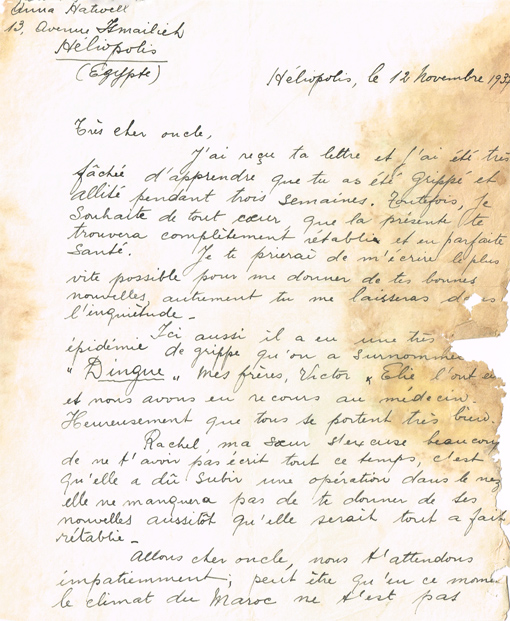 Anna Hatwell
13, Avenue Ismailieh
Héliopolis
(Egypte)
Héliopolis, le 12 Novembre 193
Très cher oncle,
J'ai reçu ta lettre et j'ai été très
fâchée d'apprendre que tu as été grippé et
allité pendant trois semaines. Toutefois, je
souhaite de tout cœur, que la présente te
trouvera complètement rétabli et en parfaite
santé. Je te prierai de m'écrire le plus
vite possible pour me donner de tes bonnes
nouvelles, autrement tu me laisseras
l'inquiétude -
Ici aussi il a eu une très
épidémie de grippe qu'on a surnommée
" Dingue " Mes frères, Victor & Elie l'ont
et nous avons eu recours au médecin.
Heureusement que tous se portent très bien.
Rachel ma sœur s'excuse beaucoup
de ne t'avoir pas écrit tout ce temps, c'est
qu'elle a dû subir une opération dans le nez
elle ne manquera pas de te donner de ses
nouvelles aussitôt qu'elle serait tout a fait
rétablie -
Allons cher oncle, nous t'attendons
impatiemment; peut être qu'en ce moment
le climat du Maroc ne t'est pas